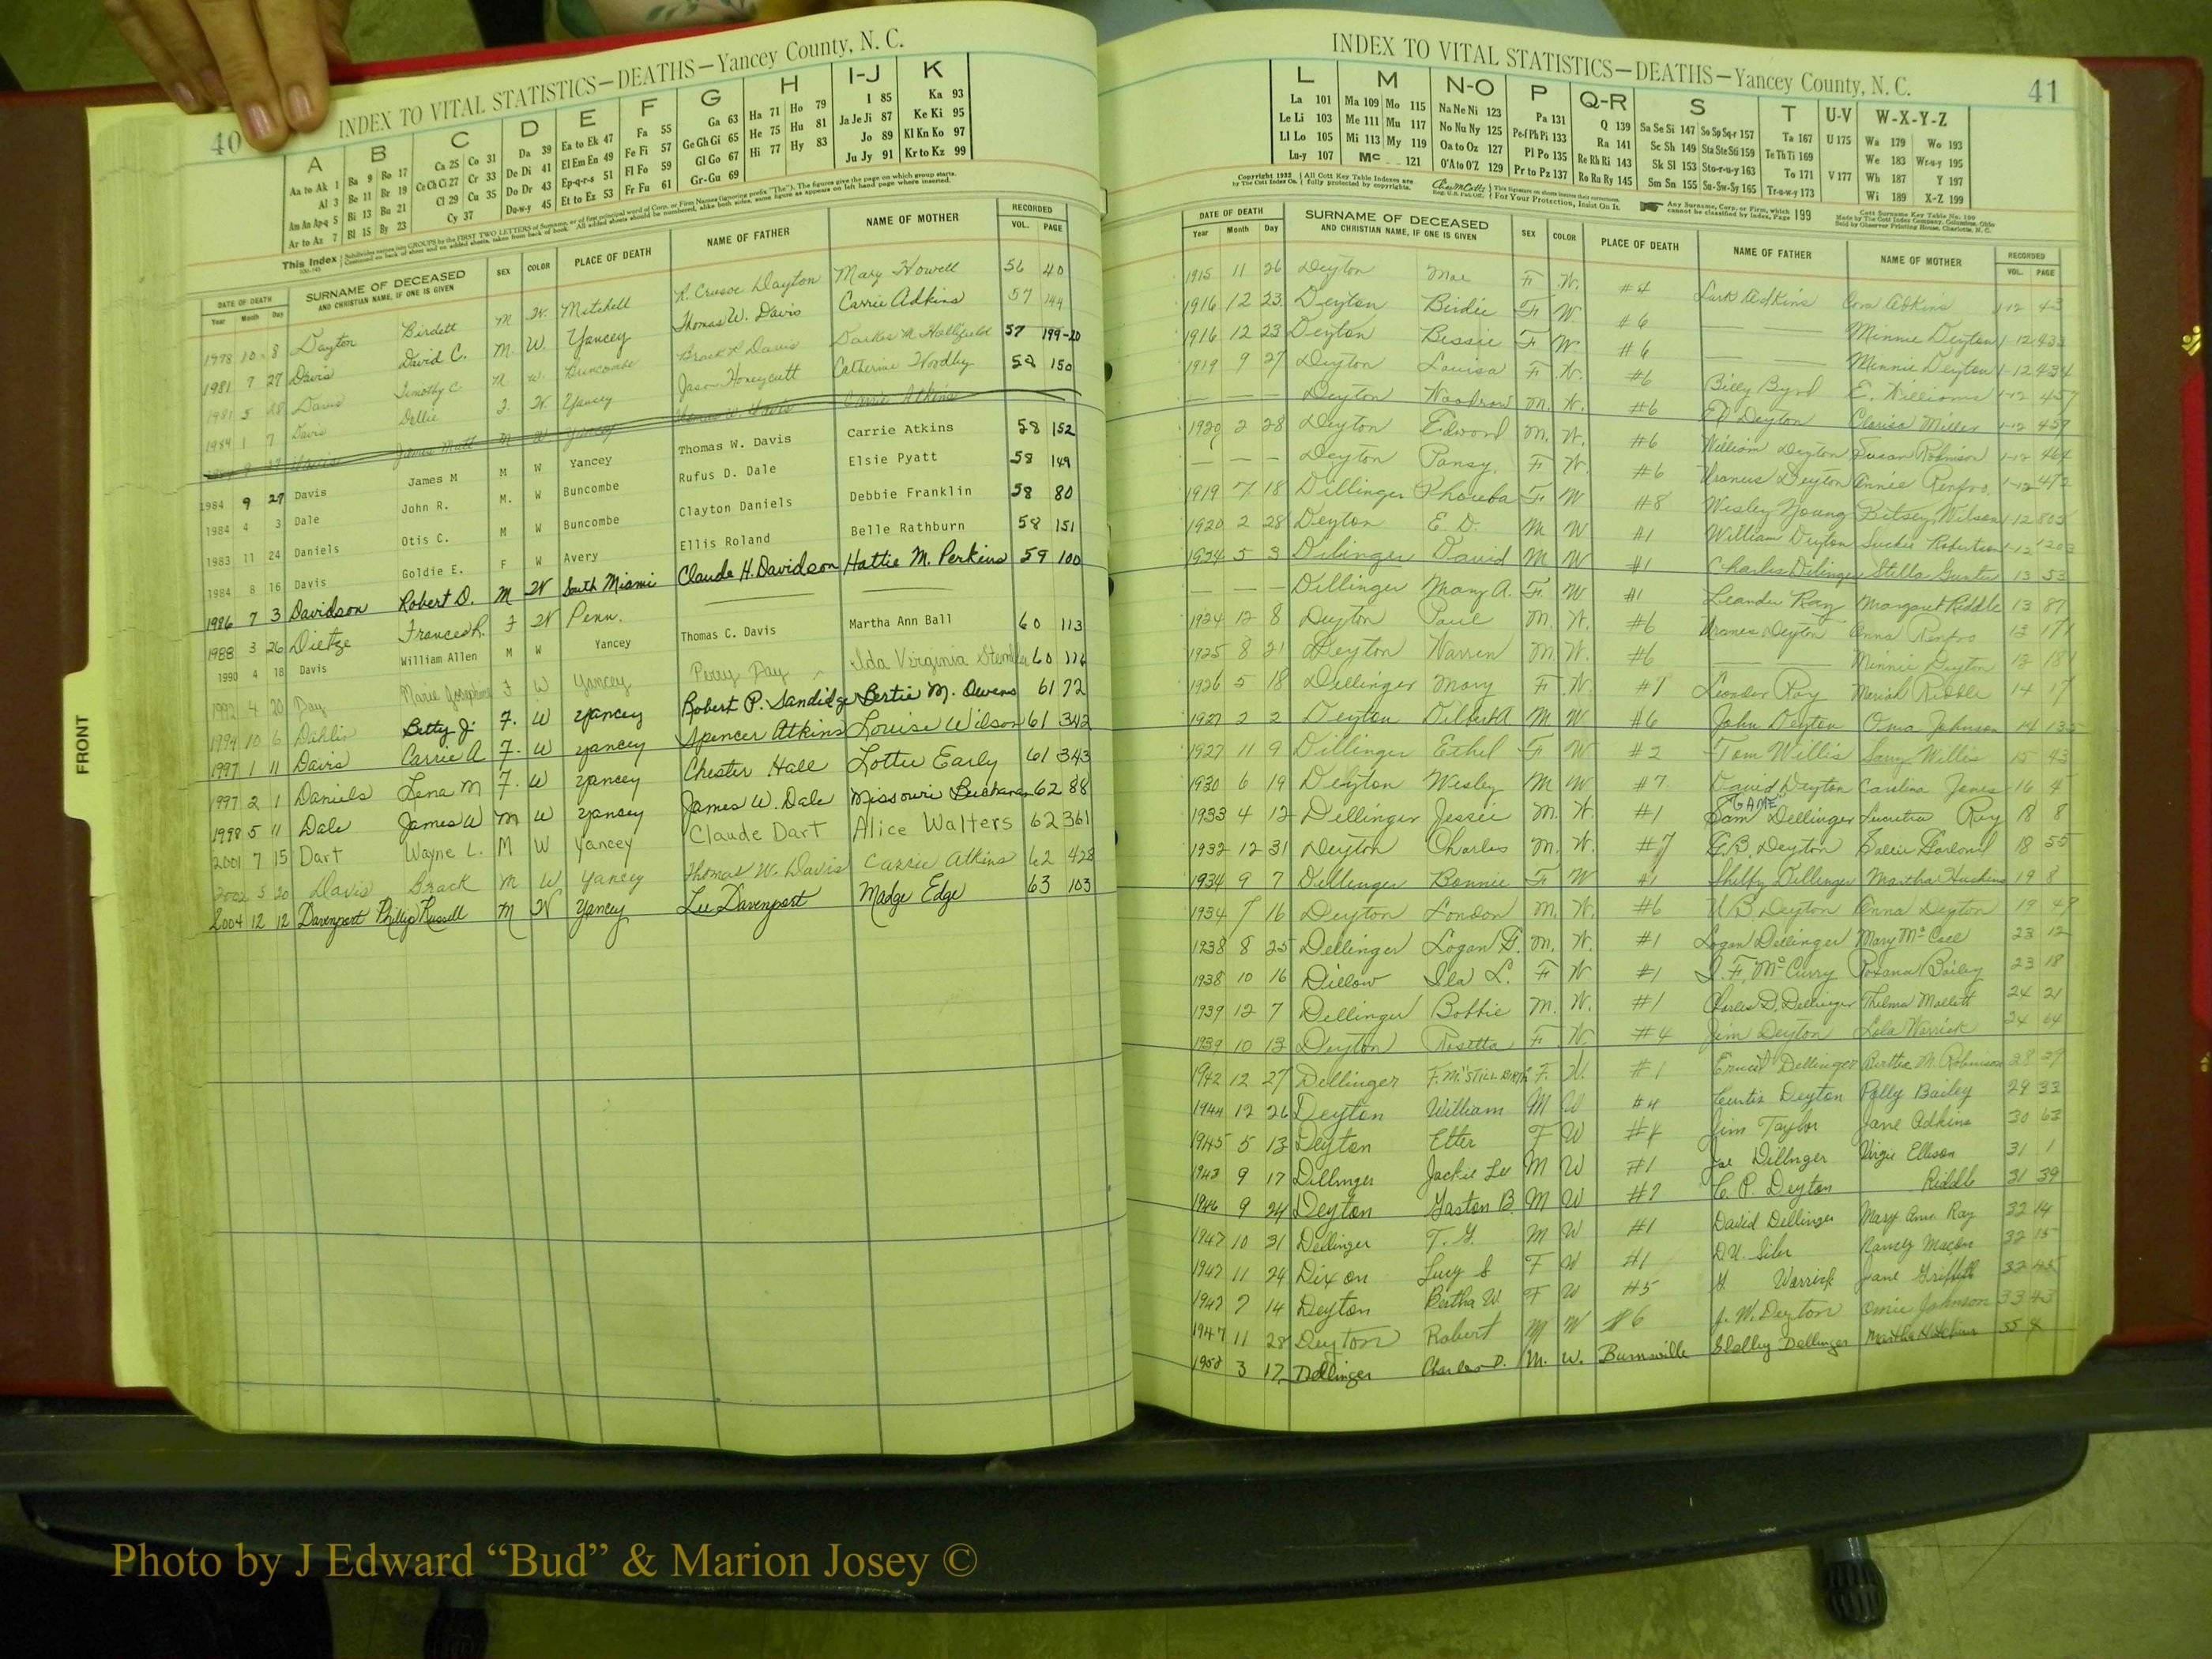 40
INDEX TO VITAL STATISTICS—DEATHS—Yancey County, N. C.
A B C D E F G H I-J K
Aa to Ak 1 Ba 9 Bo 17 Ca 25 Co 31 Da 39 Ea to Ek 47 Fa 55 Ga 63 Ha 71 Ho 79 I 85 Ka 93
Al 3 Be 11 Br 19 Ce Ch Ci 27 Cr 33 De Di 41 El Em En 49 Fe Fi 57 Ge Gh Gi 65 He 75 Hu 81 Ja Je Ji 87 Ke Ki 95
Am An Ap-q 5 Bi 13 Bu 21 Cl 29 Cu 35 Do Dr 43 Ep-q-r-s 51 Fl Fo 59 Gl Go 67 Hi 77 Hy 83 Jo 89 Kl Kn Ko 97
Ar to Az 7 Bl 15 By 23 Cy 37 Du-w-y 45 Et to Ez 53 Fr Fu 61 Gr-Gu 69 Ju Jy 91 Kr to Kz 99
This Index
DATE OF DEATH SURNAME OF DECEASED SEX COLOR PLACE OF DEATH NAME OF FATHER NAME OF MOTHER RECORDED
Year Month Day AND CHRISTIAN NAME, IF ONE IS GIVEN VOL. PAGE
10 8 Dayton Birdett M W. Mitchell R. Crusoe Dayton Mary Howell 56 40
1981 7 27 Davis David C. M. W. Yancey Thomas W. Davis Carrie Adkins 57 144
1981 5 28 Davis Timothy C M W. Buncombe Brack R Davis 57 199-20
1984 1 7 Davis Dellie F. W. Yancey Jason Honeycutt Catherine Woodby 58 150
Davis James Matt M W Yancey Thomas W. Davis Carrie Atkins
1984 9 27 Davis James M M W Yancey Thomas W. Davis Carrie Atkins 58 152
1984 4 3 Dale John R. M. W Buncombe Rufus D. Dale Elsie Pyatt 58 149
1983 11 24 Daniels Otis C. M W Buncombe Clayton Daniels Debbie Franklin 58 80
1984 8 16 Davis Goldie E. F W Avery Ellis Roland Belle Rathburn 58 151
1986 7 3 Davidson Robert D. M W South Miami Claude H. Davidson Hattie M. Perkins 59 100
1988 3 26 Dietze Frances R. F W Penn.
1990 4 18 Davis William Allen M W Yancey Thomas C. Davis Martha Ann Ball 60 113
1992 4 20 Day Marie Josephine F W Yancey Perry Day Ida Virginia 60 116
1994 10 6 Dahlis Betty J. F. W Yancey Robert P. Sandidge Bertie M. Owens 61 72
1997 1 11 Davis Carrie A F. W Yancey Spencer Atkins Louise Wilson 61 342
1997 2 1 Daniels Lena M F. W Yancey Chester Hall Lottie Early 61 343
1998 5 11 Dale James W M W Yancey James W. Dale Missouri Buchanan 62 88
2001 7 15 Dart Wayne L. M W Yancey Claude Dart Alice Walters 62 361
2002 5 20 Davis Brack M W Yancey Thomas W. Davis Carrie Atkins 62 428
2004 12 12 Davenport Phillip Russell M W Yancey Lee Davenport Madge Edge 63 103
FRONT
INDEX TO VITAL STATISTICS—DEATHS—Yancey County, N. C.
41
L M N-O P Q-R S T U-V W-X-Y-Z
La 101 Ma 109 Mo 115 Na Ne Ni 123 Pa 131 Q 139 Sa Se Si 147 So Sp Sq-r 157 Ta 167 U 175 Wa 179 Wo 193
Le Li 103 Me 111 Mu 117 No Nu Ny 125 Pe-f Ph Pi 133 Ra 141 Sc Sh 149 Sta Ste Sti 159 Te Th Ti 169 We 183 Wr-u-y 195
Ll Lo 105 Mi 113 My 119 Oa to Oz 127 Pl Po 135 Re Rh Ri 143 Sk Sl 153 Sto-r-u-y 163 To 171 V 177 Wh 187 Y 197
Lu-y 107 Mc 121 O'A to O'Z 129 Pr to Pz 137 Ro Ru Ry 145 Sm Sn 155 Su-Sw-Sy 165 Tr-u-w-y 173 Wi 189 X-Z 199
Copyright 1932 All Cott Key Table Indexes are fully protected by copyrights. For Your Protection, Insist On It. Any Surname, Corp. or Firm, which cannot be classified by Index, Page 199
DATE OF DEATH SURNAME OF DECEASED SEX COLOR PLACE OF DEATH NAME OF FATHER NAME OF MOTHER RECORDED
Year Month Day AND CHRISTIAN NAME, IF ONE IS GIVEN VOL. PAGE
1915 11 26 Deyton Mae F W. #4 Adkins Adkins 1-12 43
1916 12 23 Deyton Birdie F W #6 Minnie Deyton 1-12 433
1916 12 23 Deyton Bessie F W #6 Minnie Deyton 1-12 434
1919 9 27 Deyton Louisa F W. #6 Billy Byrd E. Williams 1-12 457
Deyton Woodrow M. W. #6 Ed Deyton Clarisa Miller 1-12 459
1920 2 28 Deyton Edward M. W. #6 William Deyton Susan Robinson 1-12 464
Deyton Pansy F W. #6 Uranus Deyton Annie Renfro 1-12 472
1919 7 18 Dillinger Phoeba F W #8 Wesley Young Betsey Wilson 1-12 805
1920 2 28 Deyton E. D. M W #1 William Deyton Robertson 1-12 1203
1924 5 3 Dilinger David M W #1 Charles Dilinger Stella Gunter 13 53
Dillinger Mary A. F. W #1 Leander Ray Margaret Riddle 13 87
1924 12 8 Deyton Paul M. W. #6 Uranus Deyton Anna Renfro 13 171
1925 8 21 Deyton Warren M. W. #6 Minnie Deyton 13 181
1926 5 18 Dellinger Mary F W. #7 Leander Ray Riddle 14 17
1927 2 2 Deyton Dilbert A M W #6 John Deyton Oma Johnson 14 135
1927 11 9 Dillinger Ethel F W #2 Tom Willis Willis 15 43
1930 6 19 Deyton Wesley M W #7 David Deyton Carolina Jones 16 4
1933 4 12 Dellinger Jessie M. W. #1 Sam "GAME" Dellinger Lucretia Ray 18 8
1932 12 31 Deyton Charles M. W. #7 G.B. Deyton Sallie Garland 18 55
1934 9 7 Dellinger Bonnie F W #1 Shelby Dillinger Martha 19 8
1934 7 16 Deyton London M. W. #6 U.B. Deyton Anna Deyton 19 49
1938 8 25 Dellinger Logan F. M. W. #1 Logan Dellinger Mary McCall 23 12
1938 10 16 Dillow Ila L. F W #1 McCurry Roxana Bailey 23 18
1939 12 7 Dellinger Bobbie M. W. #1 Charles D. Dellinger Thelma 24 21
1939 10 13 Deyton Rosetta F W. #4 Jim Deyton Lila Warrick 24 64
1942 12 27 Dellinger F. M. "STILL BIRTH" F. W. #1 Ernest Dellinger Bertha M. Robinson 28 29
1944 12 26 Deyton William M W #4 Curtis Deyton Polly Bailey 29 33
1945 5 13 Deyton Etter F W Jim Taylor Jane Adkins 30 63
9 17 Dillinger Jackie Lee M W #1 Joe Dillnger Virgie Ellison 31 1
1946 9 24 Deyton Gaston B. M W #7 C. P. Deyton Riddle 31 39
1947 10 31 Dellinger T. G. M W #1 David Dellinger Mary Ann Ray 32 14
1947 11 24 Dixon Lucy F W #1 D.U. Siler Nancy Macon 32 15
1947 7 14 Deyton Bertha W. F W #5 Warrick Jane Griffith 32 45
1947 11 28 Deyton Robert M W #6 J. W. Deyton Omie Johnson 33 43
3 17 Dellinger Charles D. M. W. Burnsville Shelby Dellinger Martha
Photo by J Edward “Bud” & Marion Josey ©